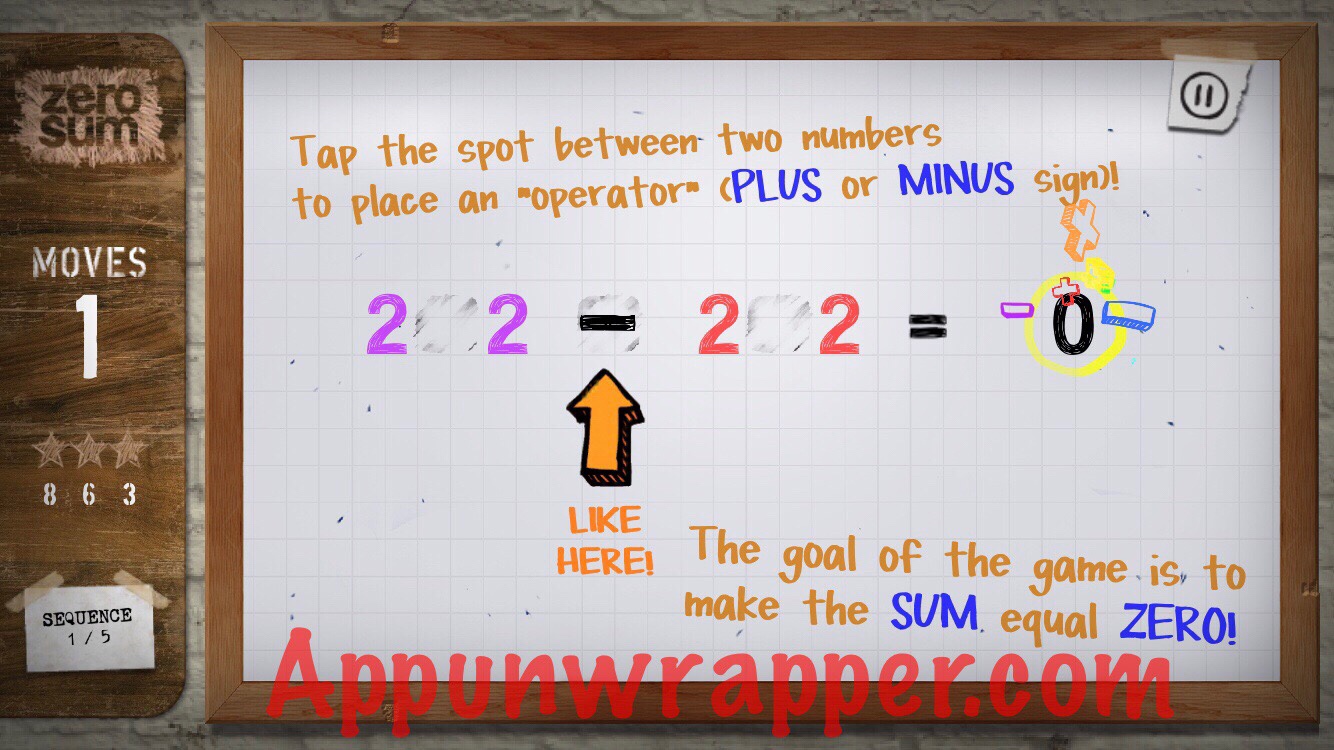 zero
sum
MOVES
1
8 6 3
SEQUENCE
1 / 5
Tap the spot between two numbers
to place an "operator" (PLUS or MINUS sign)!
2 2 - 2 2 = 0
LIKE
HERE!
The goal of the game is to
make the SUM equal ZERO!
Appunwrapper.com